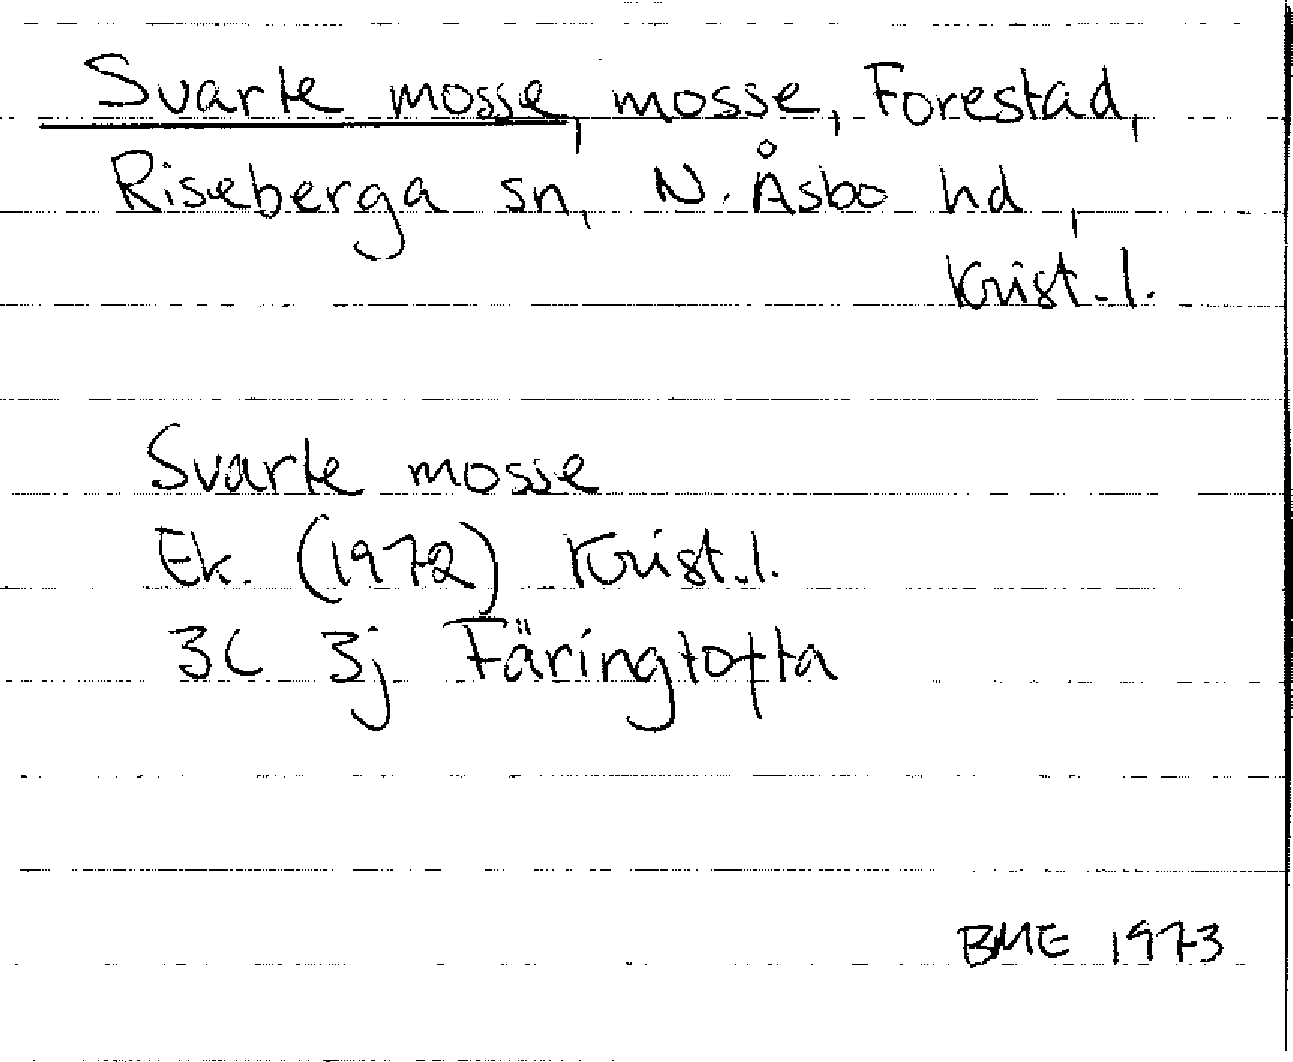 Svarte mosse, mosse, Forestad,
Riseberga sn, N. Åsbo hd,
Krist. l.
Svarte mosse
Ek. (1972) Krist. l.
3C 3j Färingtofta
BME 1973